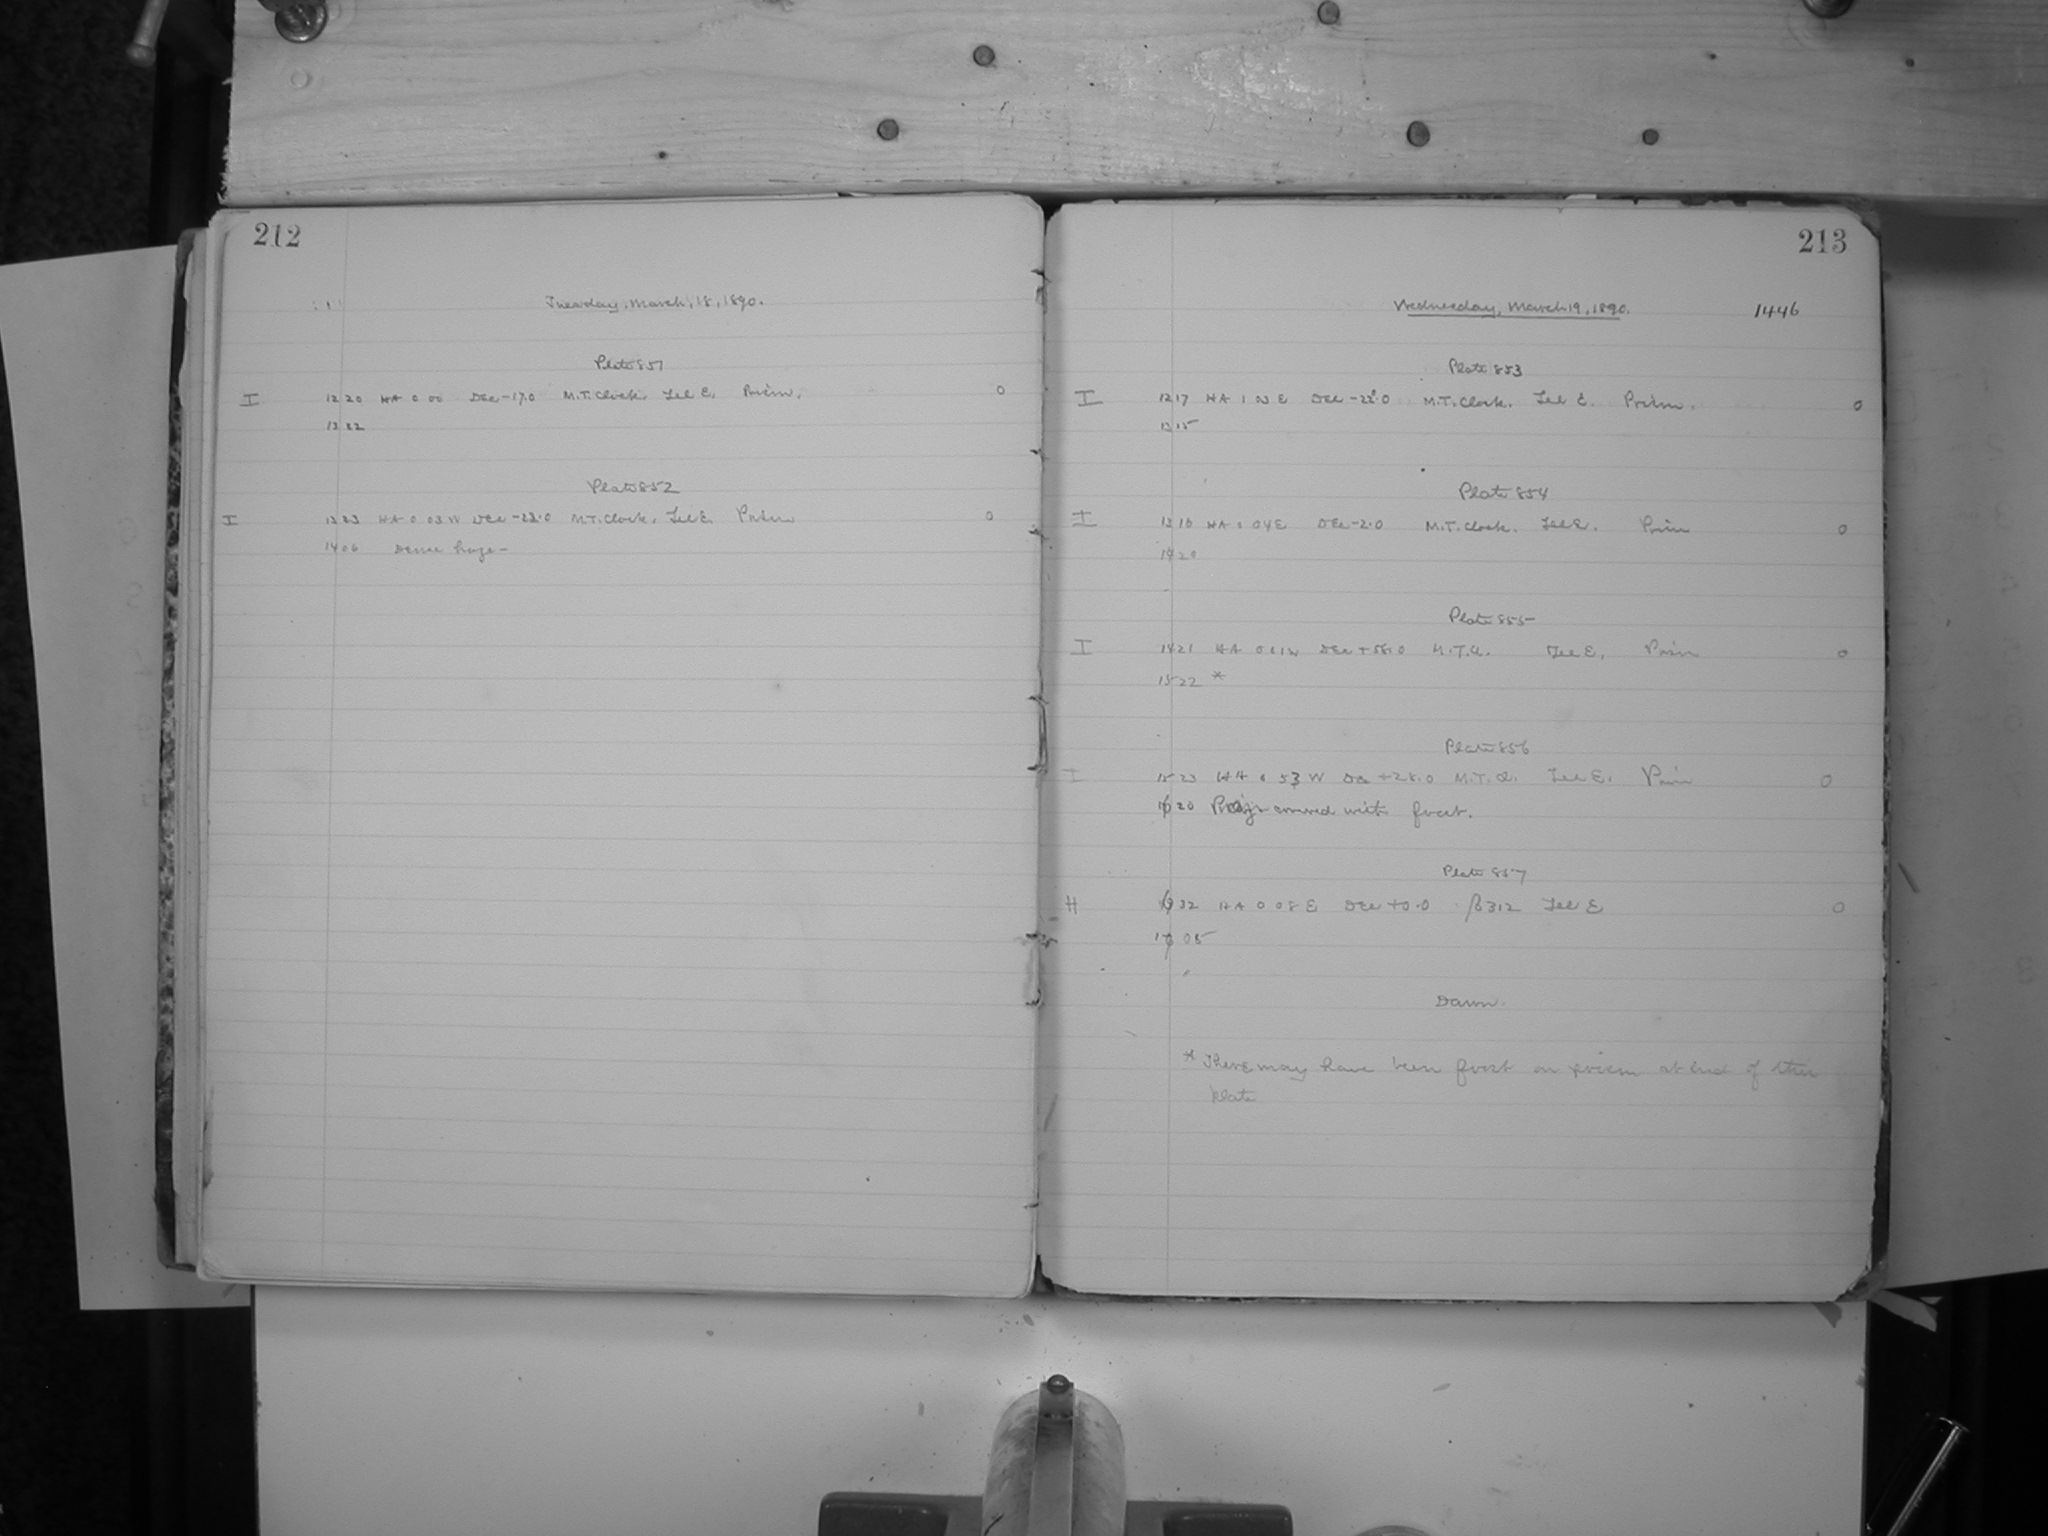 212
Tuesday, March, 18, 1890.
Plate 851
I 12 20 HA 0 00 Dec -17.0 M.T. Clock. Tel E. Prism. 0
13 22
Plate 852
I 13 23 HA 0 03 W Dec -23.0 M.T. Clock. Tel E. Prism 0
14 06 Dense haze -
213
Wednesday, March 19, 1890. 1446
Plate 853
I 12 17 HA 1 E Dec -22.0 M.T. Clock. Tel E. Prism. 0
13 15
Plate 854
I 13 16 HA 0 04 E Dec -2.0 M.T. Clock. Tel E. Prism 0
14 20
Plate 855
I 14 21 HA 0 01 W Dec +58.0 M.T. Cl. Tel E. Prism 0
15 22 *
Plate 856
I 15 23 HA 0 53 W Dec +28.0 M.T. Cl. Tel E. Prism 0
16 20 covered with frost.
Plate 857
H 16 32 HA 0 08 E Dec +0.0 β 312 Tel E 0
17 05
Dawn.
* There may have been frost on prism at end of this
plate